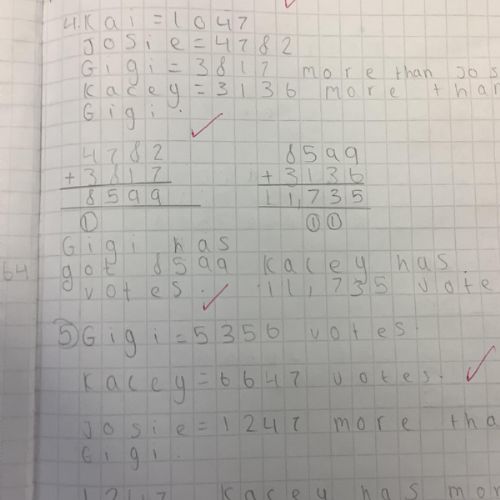 4. Kai = 1047
Josie = 4782
Gigi = 3817 more than Jos
Kacey = 3136 more than
Gigi.
4782 8599
+3817 +3136
8599 11,735
1 1 1
Gigi has
got 8599 Kacey has
votes. 11,735 vote
5 Gigi = 5356 votes.
Kacey = 6647 votes.
Josie = 1247 more tha
Gigi.
Kacey has mor